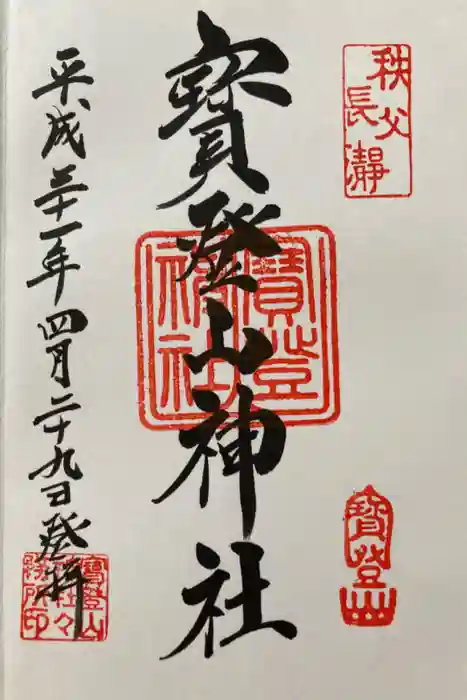 秩父
長瀞
寳登山神社
寳登
神社
寳登山
平成三十一年四月二十九日登拝
寳登山
神社々
務所印